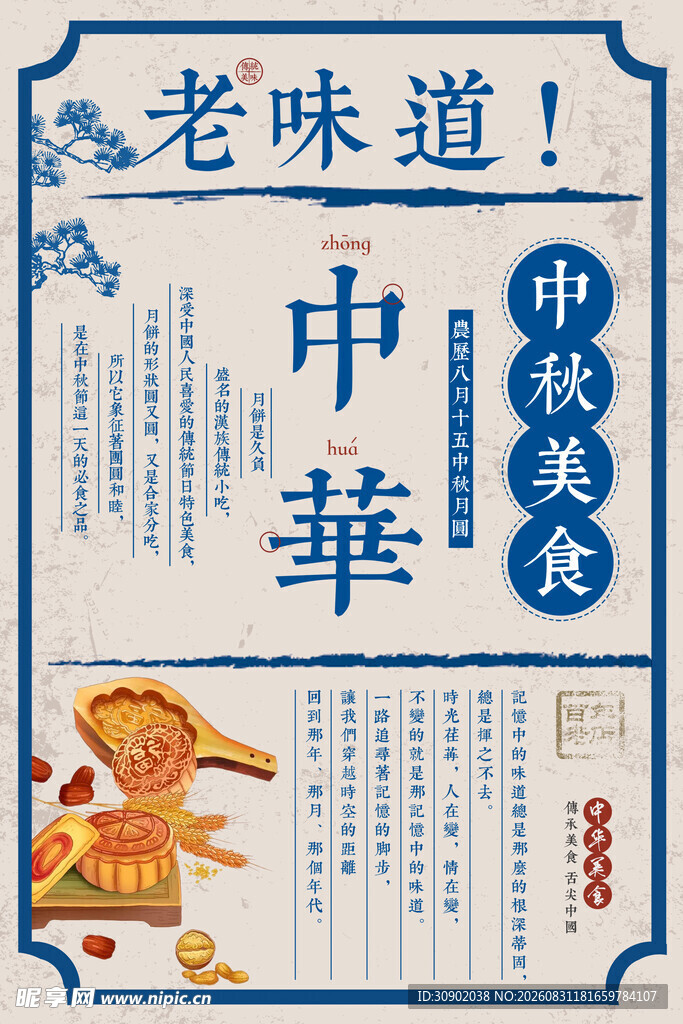 老味道！
傳統美味
zhōng
中
huá
華
中秋美食
農歷八月十五中秋月圓
月餅是久負
盛名的漢族傳統小吃，
深受中國人民喜愛的傳統節日特色美食，
月餅的形狀圓又圓，又是合家分吃，
所以它象征著團圓和睦，
是在中秋節這一天的必食之品。
百年老店
中华美食
傳承美食 舌尖中國
記憶中的味道總是那麼的根深蒂固，
總是揮之不去。
時光荏苒，人在變，情在變，
不變的就是那記憶中的味道。
一路追尋著記憶的脚步，
讓我們穿越時空的距離
回到那年、那月、那個年代。
昵享网 www.nipic.cn
ID:30902038 NO:20260831181659784107